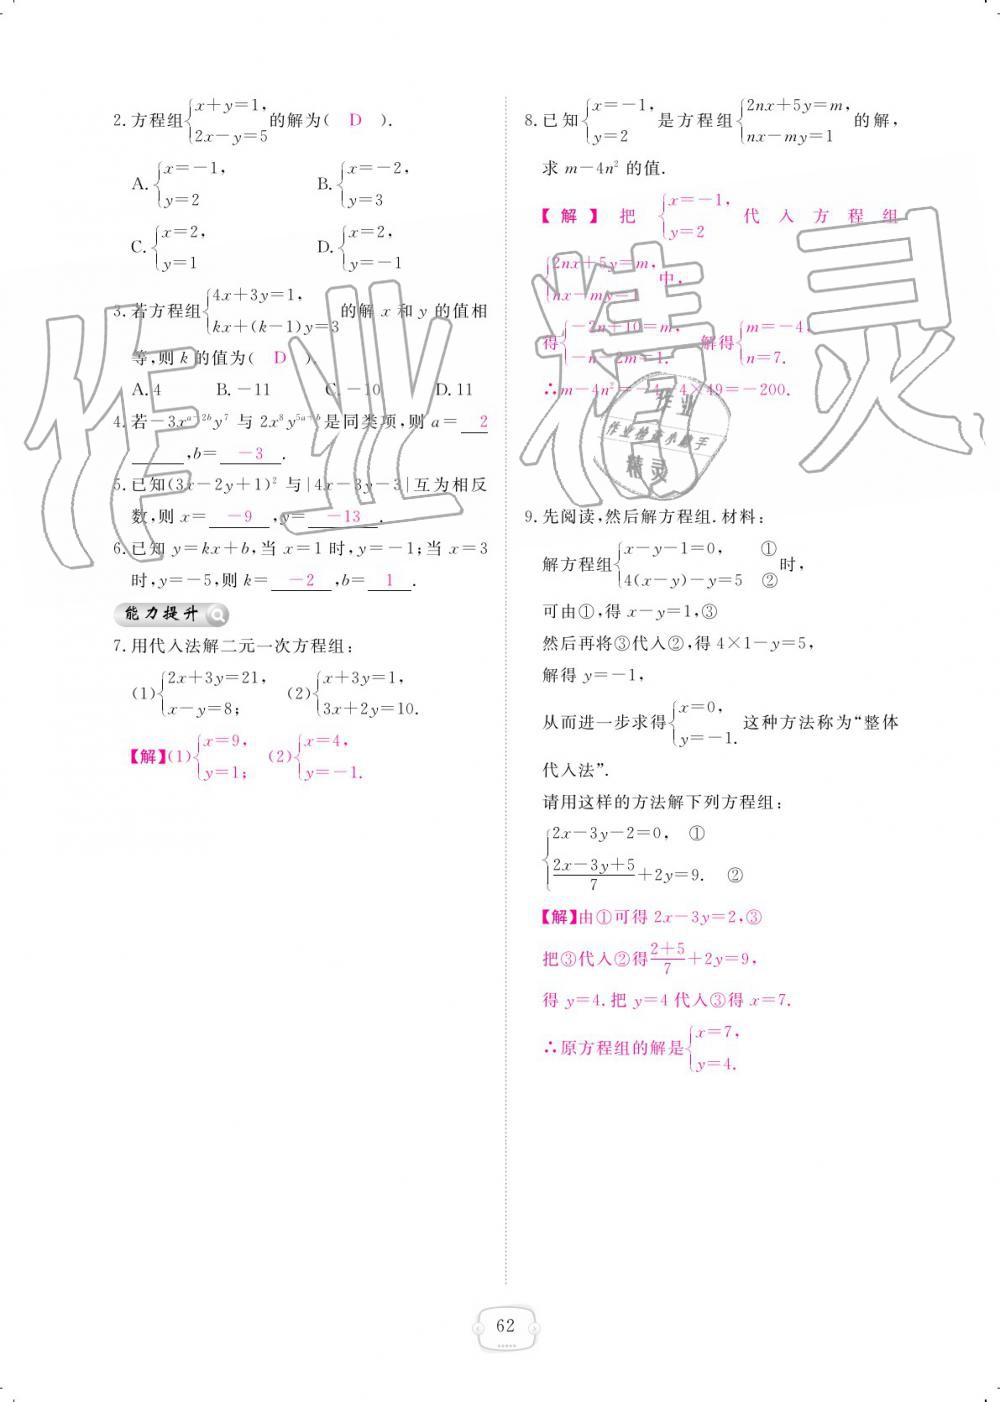 2.方程组{x+y=1, 2x-y=5 的解为( D ).
A.{x=-1, y=2 B.{x=-2, y=3
C.{x=2, y=1 D.{x=2, y=-1
3.若方程组{4x+3y=1, kx+(k-1)y=3 的解 x 和 y 的值相
等,则 k 的值为( D ).
A.4 B.-11 C.-10 D.11
4.若-3xᵃ⁻²ᵇy⁷ 与 2x⁸y⁵ᵃ⁺ᵇ是同类项,则 a= 2
,b= -3 .
5.已知(3x-2y+1)² 与|4x-3y-3|互为相反
数,则 x= -9 ,y= -13 .
6.已知 y=kx+b,当 x=1 时,y=-1;当 x=3
时,y=-5,则 k= -2 ,b= 1 .
能力提升
7.用代入法解二元一次方程组:
(1){2x+3y=21, x-y=8; (2){x+3y=1, 3x+2y=10.
【解】(1){x=9, y=1; (2){x=4, y=-1.
8.已知{x=-1, y=2 是方程组{2nx+5y=m, nx-my=1 的解,
求 m-4n² 的值.
【解】把{x=-1, y=2 代入方程组
{2nx+5y=m, nx-my=1 中,
得{-2n+10=m, -n-2m=1. 解得{m=-4 n=7.
∴m-4n²=-4-4×49=-200.
9.先阅读,然后解方程组.材料:
解方程组{x-y-1=0, ① 4(x-y)-y=5 ② 时,
可由①,得 x-y=1,③
然后再将③代入②,得 4×1-y=5,
解得 y=-1,
从而进一步求得{x=0, y=-1. 这种方法称为“整体
代入法”.
请用这样的方法解下列方程组:
{2x-3y-2=0, ①
(2x-3y+5)/7+2y=9. ②
【解】由①可得 2x-3y=2,③
把③代入②得(2+5)/7+2y=9,
得 y=4.把 y=4 代入③得 x=7.
∴原方程组的解是{x=7, y=4.
62
作业精灵
作业
作业检查小助手
精灵